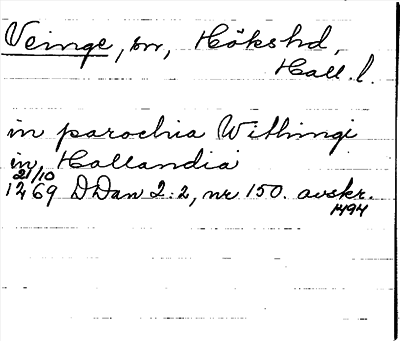 Veinge, sn, Hökshd,
Hall. l.
in parochia Withingi
in Hallandia
21/10
1269 DDan 2:2, nr 150. avskr.
1494